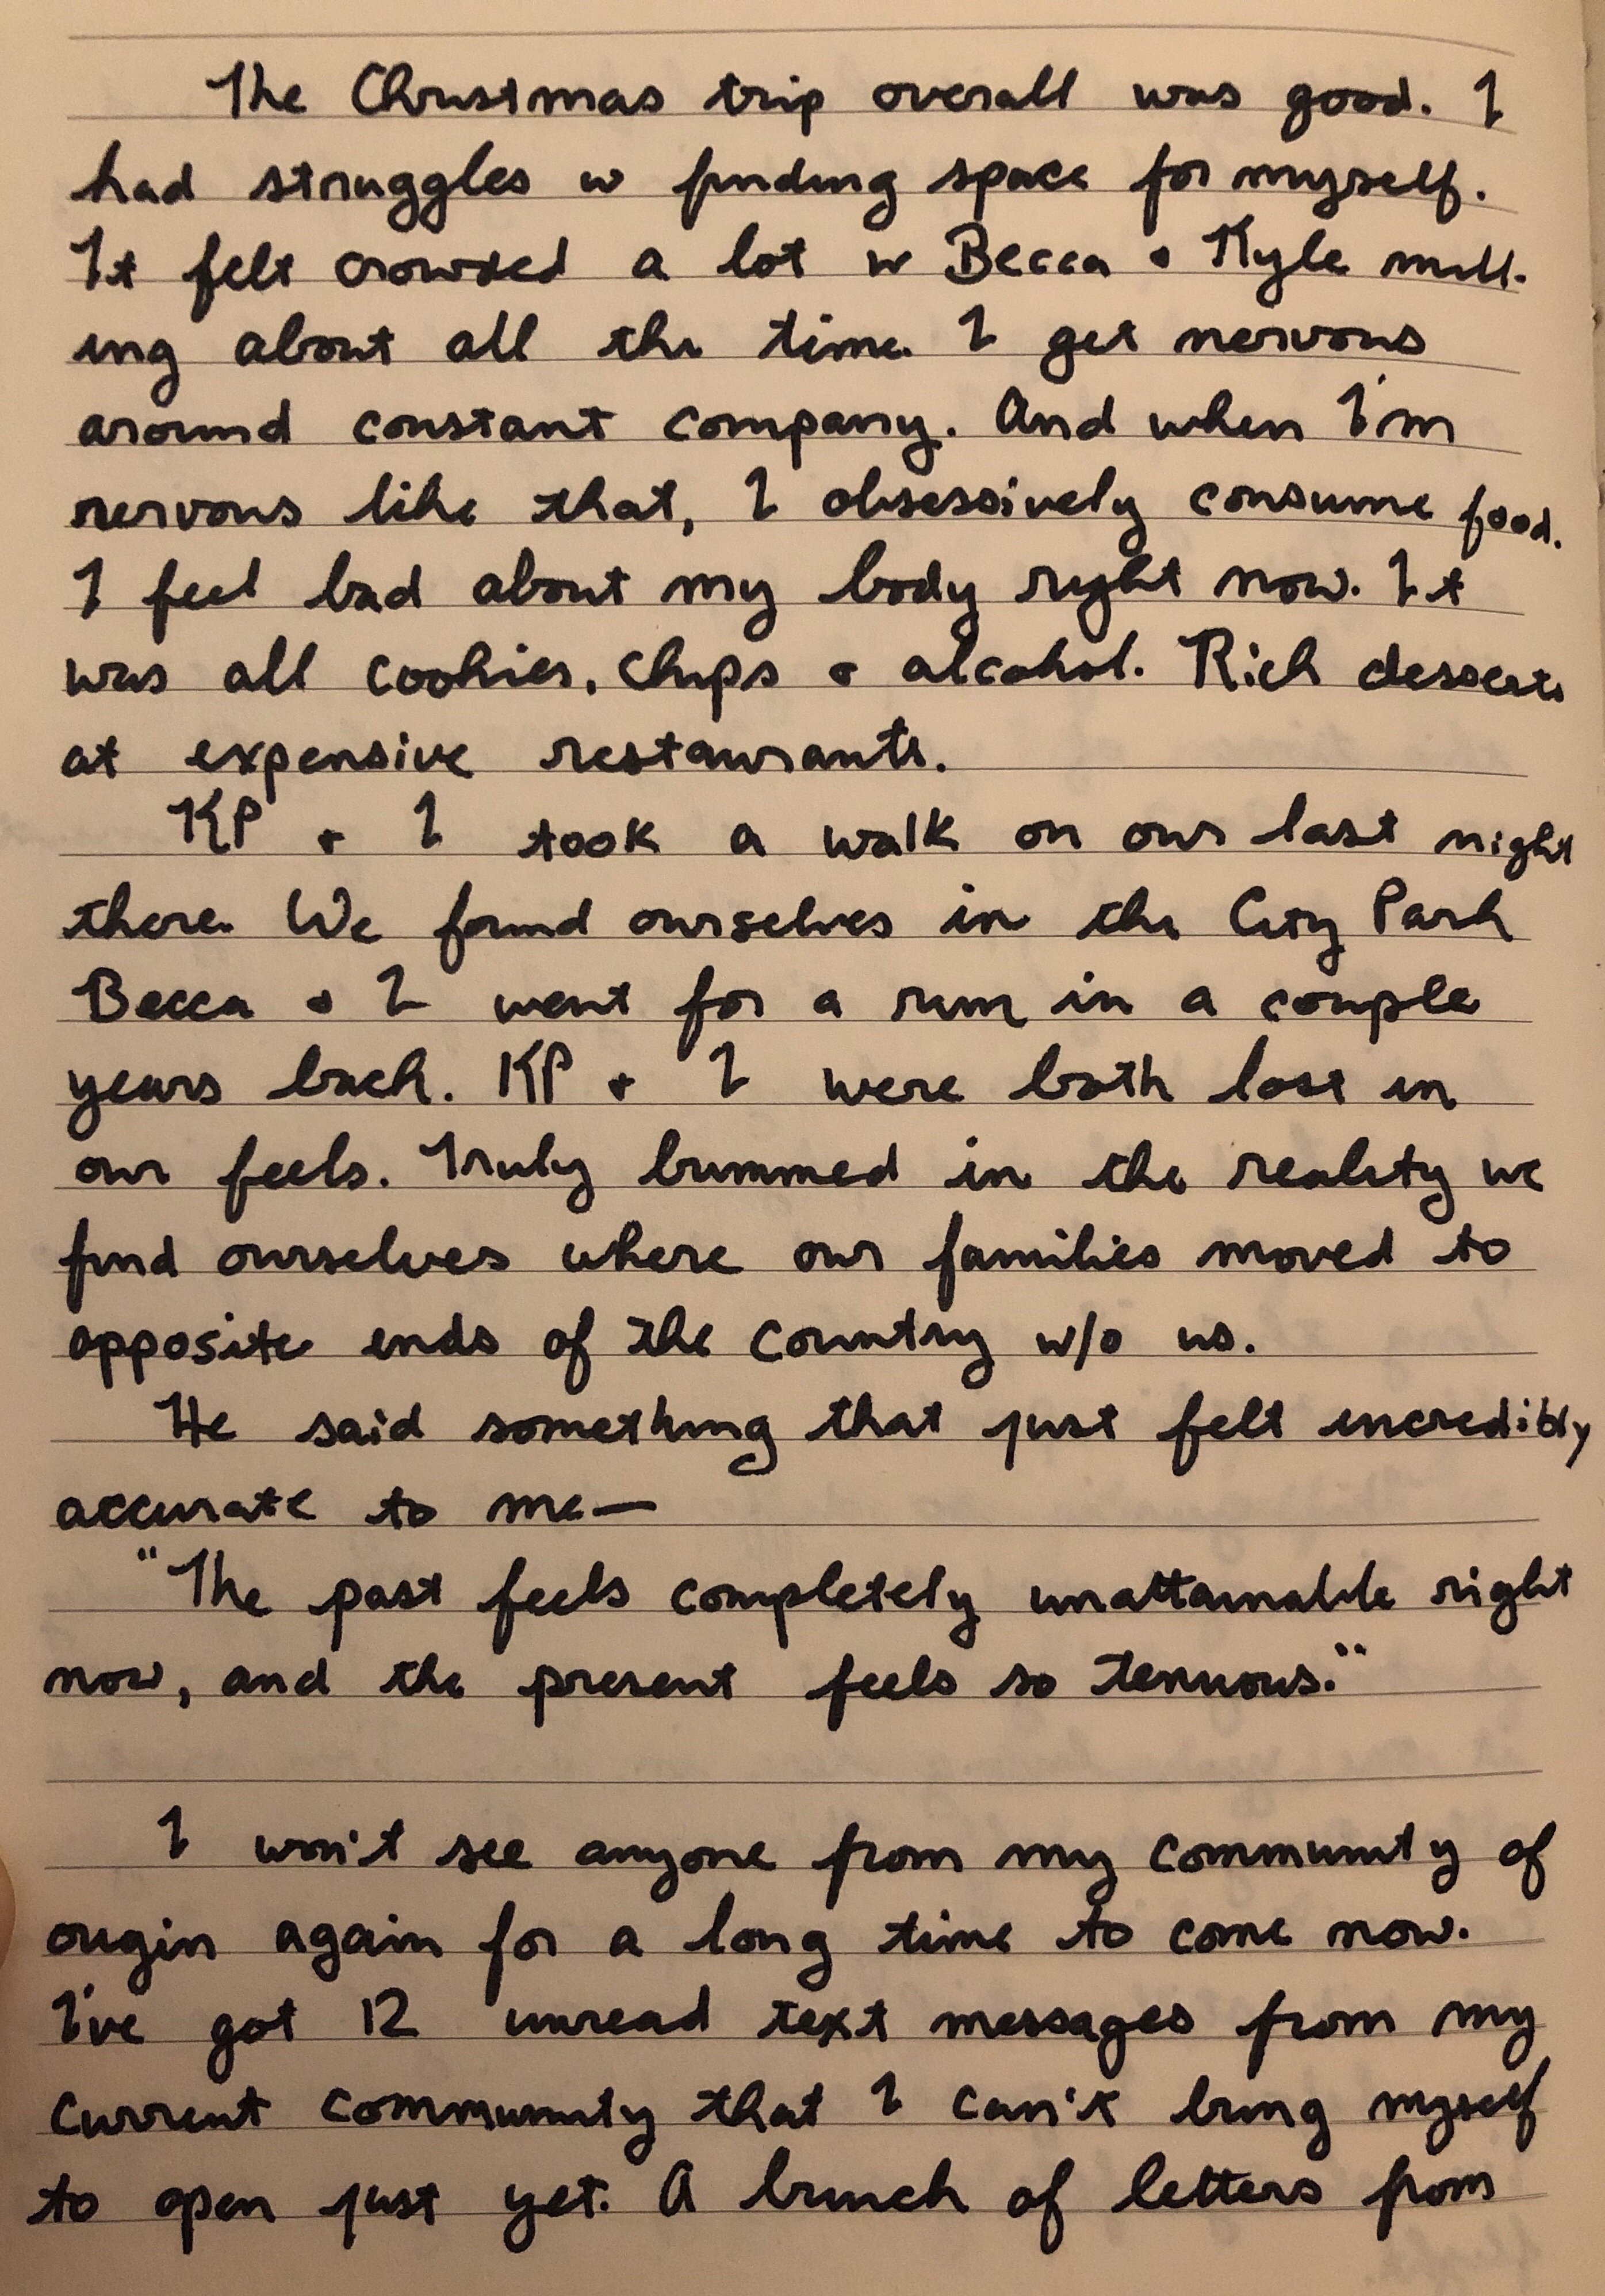 The Christmas trip overall was good. I
had struggles w finding space for myself.
It felt crowded a lot w Becca + Kyle mill-
ing about all the time. I get nervous
around constant company. And when I'm
nervous like that, I obsessively consume food.
I feel bad about my body right now. It
was all cookies, chips + alcohol. Rich desserts
at expensive restaurants.
KP + I took a walk on our last night
there. We found ourselves in the City Park
Becca + I went for a run in a couple
years back. KP + I were both lost in
our feels. Truly bummed in the reality we
find ourselves where our families moved to
opposite ends of the country w/o us.
He said something that just felt incredibly
accurate to me—
"The past feels completely unattainable right
now, and the present feels so tenuous."
I won't see anyone from my community of
origin again for a long time to come now.
I've got 12 unread text messages from my
current community that I can't bring myself
to open just yet. A bunch of letters from